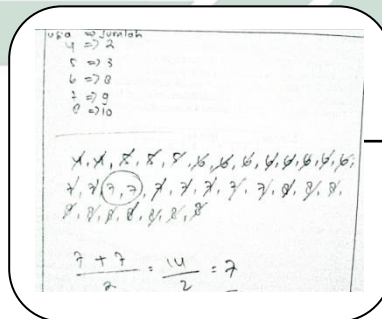 usia => Jumlah
4 => 2
5 => 3
6 => 8
7 => 9
8 => 10
4, 4, 5, 5, 5, 6, 6, 6, 6, 6, 6, 6, 6,
7, 7, 7, 7, 7, 7, 7, 7, 7, 8, 8, 8,
8, 8, 8, 8, 8, 8, 8
7 + 7 / 2 = 14 / 2 = 7